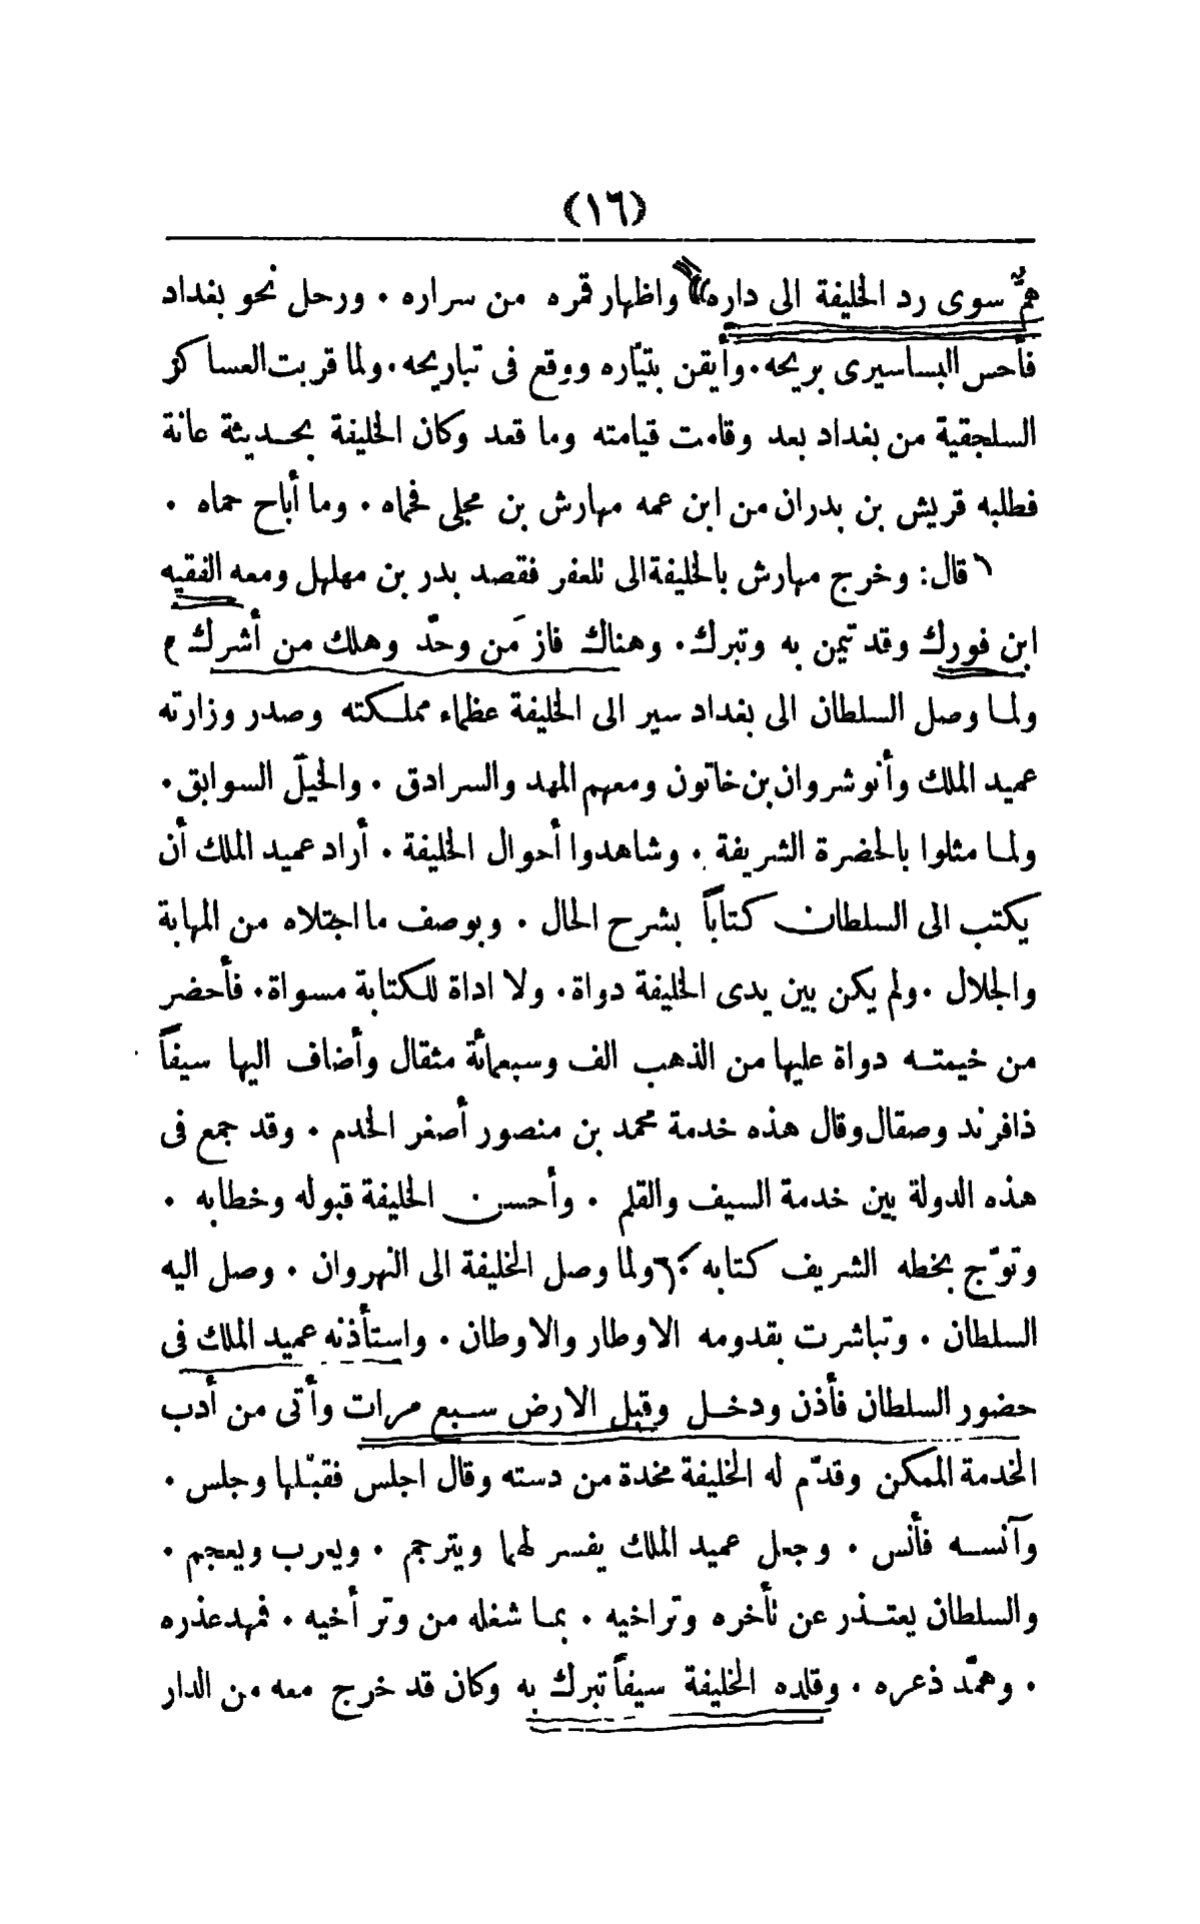 (١٦)
همٌّ سوى رد الخليفة الى داره واظهار قمره من سراره . ورحل نحو بغداد
فأحس البساسيرى بريحه . وأيقن بتيّاره ووقع فى تباريحه . ولما قربت العساكر
السلجقية من بغداد بعد وقامت قيامته وما قعد وكان الخليفة بحديثة عانة
فطلبه قريش بن بدران من ابن عمه مهارش بن مجلى فحماه . وما أباح حماه .
قال : وخرج مهارش بالخليفة الى تلعفر فقصد بدر بن مهلهل ومعه الفقيه
ابن فورك وقد تيمن به وتبرك . وهناك فاز مَن وحّد وهلك من أشرك م
ولما وصل السلطان الى بغداد سير الى الخليفة عظماء مملكته وصدر وزارته
عميد الملك وأنوشروان بن خاتون ومعهم المهد والسرادق . والخيل السوابق .
ولما مثلوا بالحضرة الشريفة . وشاهدوا أحوال الخليفة . أراد عميد الملك أن
يكتب الى السلطان كتاباً بشرح الحال . وبوصف ما اجتلاه من المهابة
والجلال . ولم يكن بين يدى الخليفة دواة . ولا اداة للكتابة مسواة . فأحضر
من خيمته دواة عليها من الذهب الف وسبعمائة مثقال وأضاف اليها سيفاً
ذافرند وصقال وقال هذه خدمة محمد بن منصور أصغر الخدم . وقد جمع فى
هذه الدولة بين خدمة السيف والقلم . وأحسن الخليفة قبوله وخطابه .
وتوّج بخطه الشريف كتابه . ولما وصل الخليفة الى النهروان . وصل اليه
السلطان . وتباشرت بقدومه الاوطار والاوطان . واستأذنه عميد الملك فى
حضور السلطان فأذن ودخل وقبل الارض سبع مرات وأتى من أدب
الخدمة الممكن وقدّم له الخليفة مخدة من دسته وقال اجلس فقبّلها وجلس .
وآنسه فأنس . وجعل عميد الملك يفسر لهما ويترجم . ويعرب ويعجم .
والسلطان يعتذر عن تأخره وتراخيه . بما شغله من وتر أخيه . فمهد عذره
. وهمّد ذعره . وقلده الخليفة سيفاً تبرك به وكان قد خرج معه من الدار